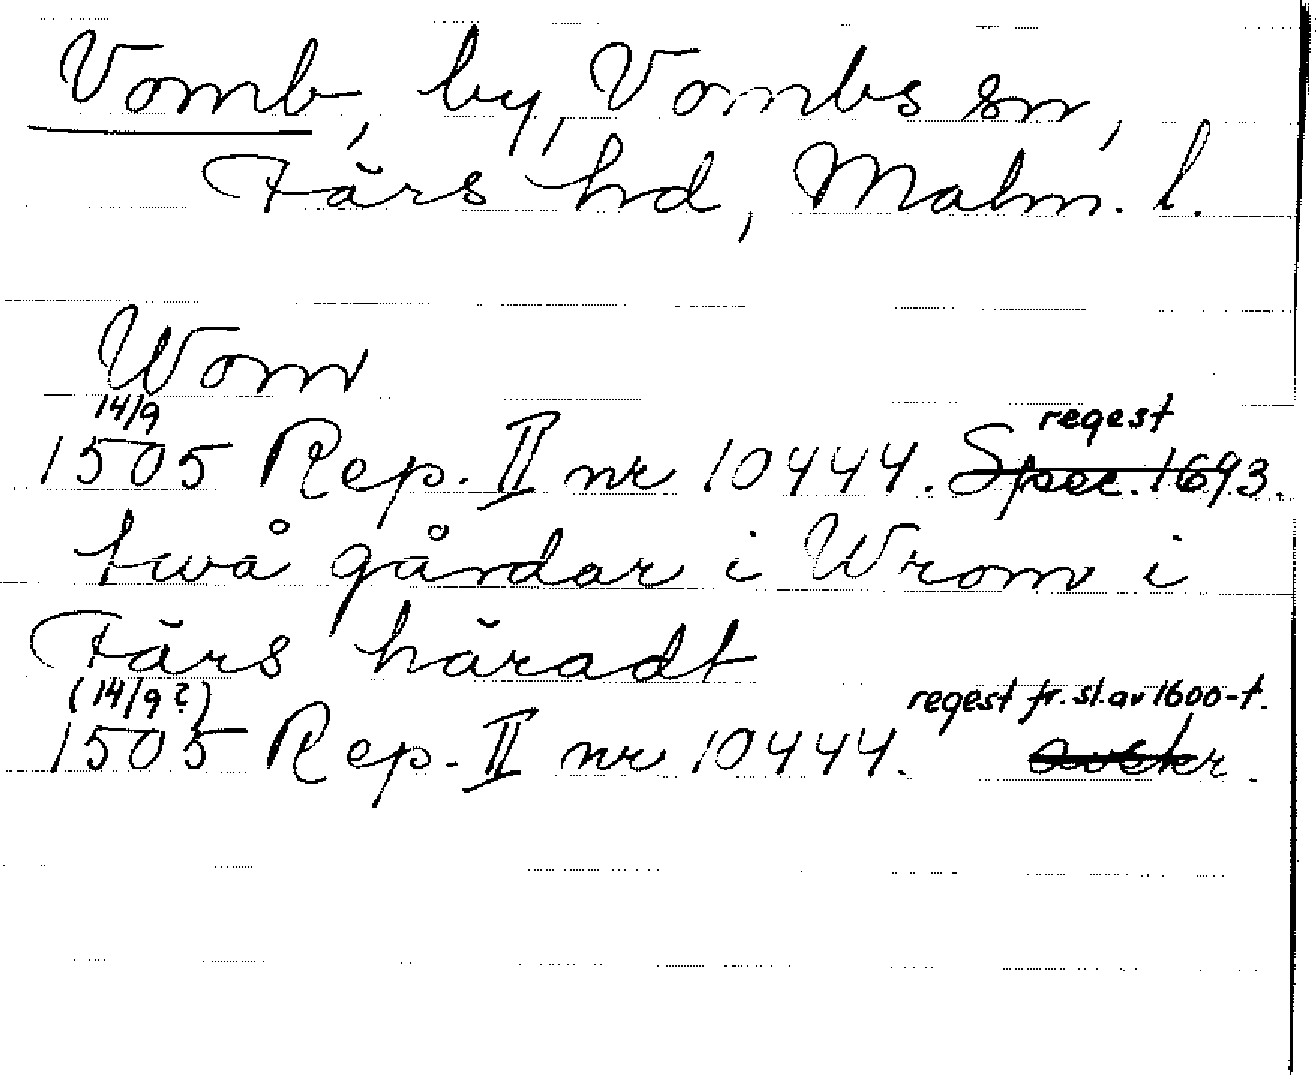 Vomb, by, Vombs sn,
Färs hd, Malm. l.
Wom
14/9
regest
1505 Rep. II nr 10444. Spec. 1693.
twå gårdar i Wrom i
Färs häradt
(14/9?)
regest fr. sl. av 1600-t.
1505 Rep. II nr 10444.